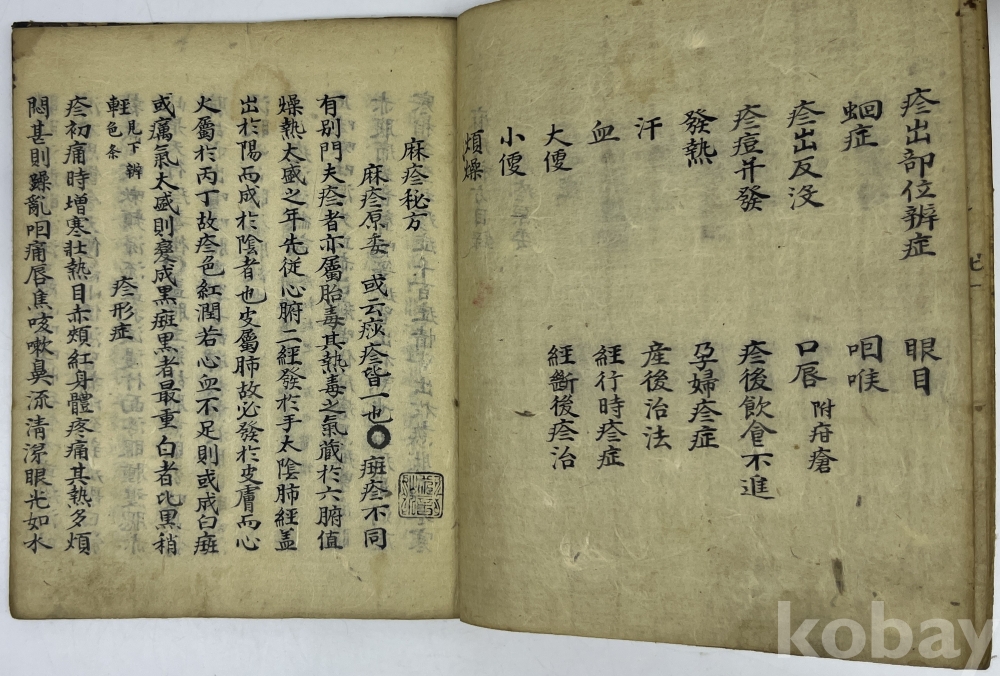 疹出部位辨症 眼目
蛔症 咽喉
疹出反沒 口唇 附疳瘡
疹痘幷發 疹後飮食不進
發熱 孕婦疹症
汗 産後治法
血 經行時疹症
大便 經斷後疹治
小便
煩燥
麻疹秘方
麻疹原委 或云痧疹皆一也 ○ 斑疹不同
有別門夫疹者亦屬胎毒其熱毒之氣藏於六腑值
燥熱太盛之年先從心腑二經發於手太陰肺經盖
出於陽而成於陰者也皮屬肺故必發於皮膚而心
火屬於丙丁故疹色紅潤若心血不足則或成白斑
或癘氣太盛則變成黑斑黑者最重白者比黑稍
輕 見下辨色条 疹形症
疹初痛時增寒壯熱目赤頰紅身體疼痛其熱多煩
悶甚則躁亂咽痛唇焦咳嗽鼻流清涕眼光如水
kobay